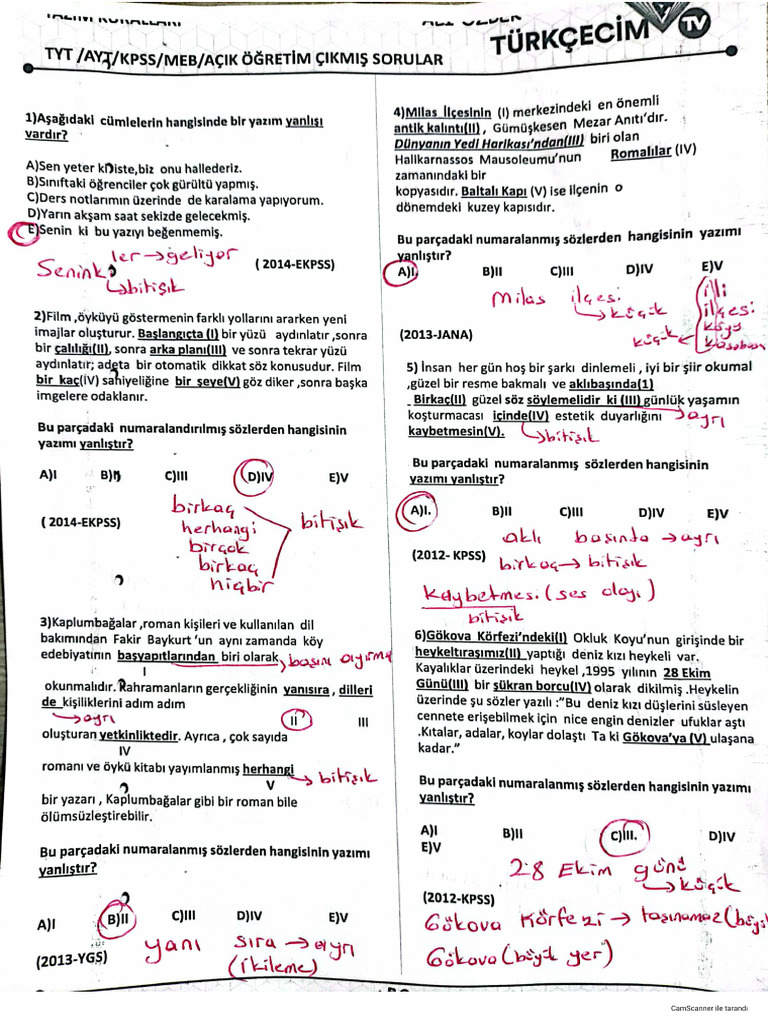 TÜRKÇECİM TV
TYT /AYT/KPSS/MEB/AÇIK ÖĞRETİM ÇIKMIŞ SORULAR
1)Aşağıdaki cümlelerin hangisinde bir yazım yanlışı
vardır?
A)Sen yeter ki iste,biz onu hallederiz.
B)Sınıftaki öğrenciler çok gürültü yapmış.
C)Ders notlarımın üzerinde de karalama yapıyorum.
D)Yarın akşam saat sekizde gelecekmiş.
E)Senin ki bu yazıyı beğenmemiş.
ler → geliyor
( 2014-EKPSS)
Senink
→ bitişik
2)Film ,öyküyü göstermenin farklı yollarını ararken yeni
imajlar oluşturur. Başlangıçta (I) bir yüzü aydınlatır ,sonra
bir çalılığı(II), sonra arka planı(III) ve sonra tekrar yüzü
aydınlatır; adeta bir otomatik dikkat söz konusudur. Film
bir kaç(IV) saniyeliğine bir şeye(V) göz diker ,sonra başka
imgelere odaklanır.
Bu parçadaki numaralandırılmış sözlerden hangisinin
yazımı yanlıştır?
A)I B)II C)III D)IV E)V
birkaç
( 2014-EKPSS)
herhangi bitişik
birçok
birkaç
hiçbir
3)Kaplumbağalar ,roman kişileri ve kullanılan dil
bakımından Fakir Baykurt 'un aynı zamanda köy
edebiyatının başyapıtlarından biri olarak
I
okunmalıdır. Kahramanların gerçekliğinin yanısıra , dilleri
de kişiliklerini adım adım
→ ayrı II III
oluşturan yetkinliktedir. Ayrıca , çok sayıda
IV
romanı ve öykü kitabı yayımlanmış herhangi → bitişik
V
bir yazarı , Kaplumbağalar gibi bir roman bile
ölümsüzleştirebilir.
Bu parçadaki numaralanmış sözlerden hangisinin yazımı
yanlıştır?
A)I B)II C)III D)IV E)V
(2013-YGS)
yanı sıra → ayrı
(ikileme)
4)Milas İlçesinin (I) merkezindeki en önemli
antik kalıntı(II) , Gümüşkesen Mezar Anıtı'dır.
Dünyanın Yedi Harikası'ndan(III) biri olan
Halikarnassos Mausoleumu'nun Romalılar (IV)
zamanındaki bir
kopyasıdır. Baltalı Kapı (V) ise ilçenin o
dönemdeki kuzey kapısıdır.
Bu parçadaki numaralanmış sözlerden hangisinin yazımı
yanlıştır?
A)I. B)II C)III D)IV E)V
Milas ilçesi
→ küçük
ili
ilçesi
köyü
kasabası
küçük
(2013-JANA)
5) İnsan her gün hoş bir şarkı dinlemeli , iyi bir şiir okumalı
,güzel bir resme bakmalı ve aklıbaşında(1)
Birkaç(II) güzel söz söylemelidir ki (III) günlük yaşamın
koşturmacası içinde(IV) estetik duyarlığını → ayrı
kaybetmesin(V).
→ bitişik
Bu parçadaki numaralanmış sözlerden hangisinin
yazımı yanlıştır?
A)I. B)II C)III D)IV E)V
aklı başında → ayrı
(2012- KPSS)
birkaç → bitişik
Kaybetmesi (ses olayı)
bitişik
6)Gökova Körfezi'ndeki(I) Okluk Koyu'nun girişinde bir
heykeltıraşımız(II) yaptığı deniz kızı heykeli var.
Kayalıklar üzerindeki heykel ,1995 yılının 28 Ekim
Günü(III) bir şükran borcu(IV) olarak dikilmiş .Heykelin
üzerinde şu sözler yazılı :"Bu deniz kızı düşlerini süsleyen
cennete erişebilmek için nice engin denizler ufuklar aştı
.Kıtalar, adalar, koylar dolaştı Ta ki Gökova'ya (V) ulaşana
kadar."
Bu parçadaki numaralanmış sözlerden hangisinin yazımı
yanlıştır?
A)I B)II C)III. D)IV
E)V
28 Ekim günü
→ küçük
(2012-KPSS)
Gökova Körfezi →
Gökova (büyük yer)
CamScanner ile tarandı